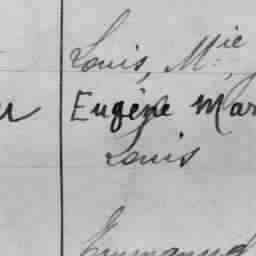 Louis, Mie,
Eugène Mar
Louis
Emmanuel